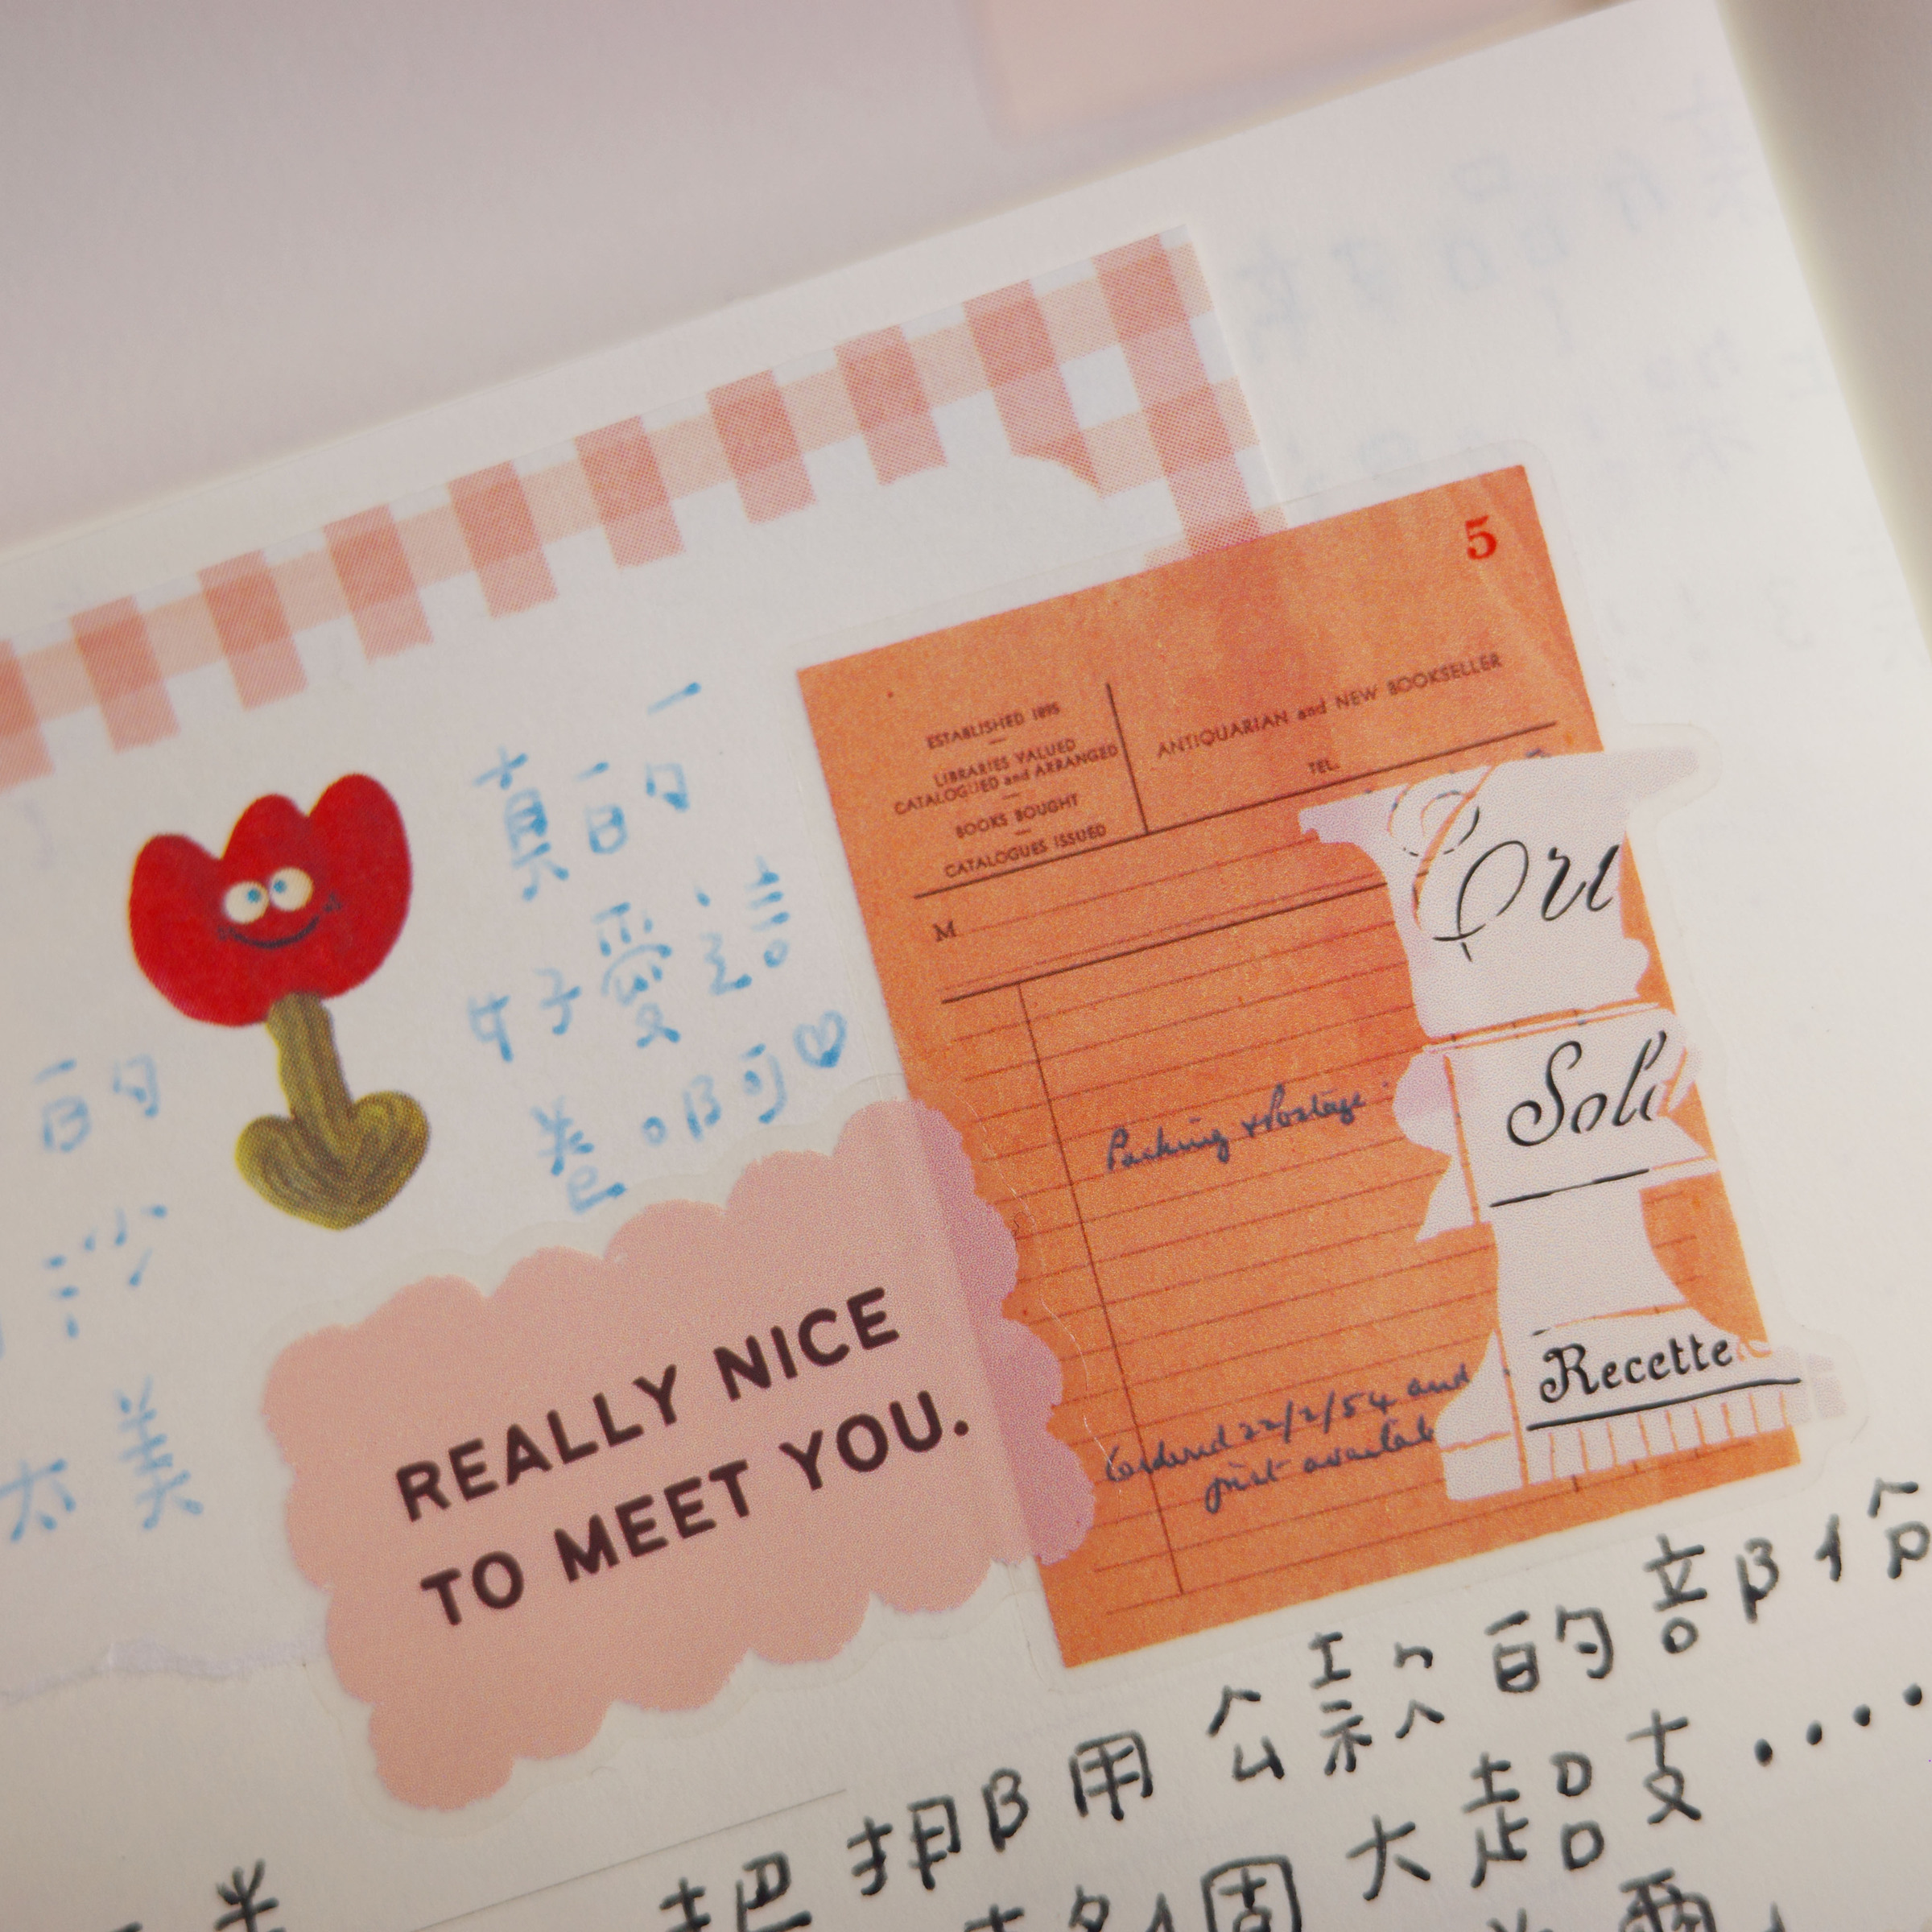 5
ESTABLISHED 1895
LIBRARIES VALUED
CATALOGUED and ARRANGED
BOOKS BOUGHT
CATALOGUES ISSUED
ANTIQUARIAN and NEW BOOKSELLER
TEL.
M
Packing & Postage
Ordered 22/2/54 and
Soli
Recette
真的
好愛這
卷啊♡
的
沙
太美
REALLY NICE
TO MEET YOU.
把挪用公款的部份
個大超支....